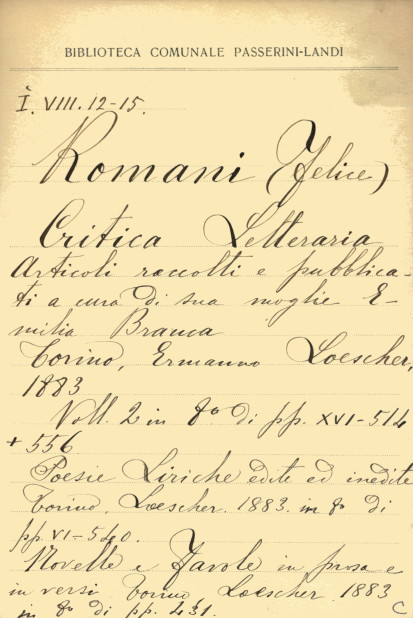 BIBLIOTECA COMUNALE PASSERINI-LANDI
I. VIII. 12-15.
Romani (Felice)
Critica Letteraria
Articoli raccolti e pubblica-
ti a cura di sua moglie E-
milia Branca
Torino, Ermanno Loescher,
1883
Voll. 2 in 8º di pp. XVI-514
+ 556
Poesie Liriche edite ed inedite
Torino, Loescher. 1883. in 8º di
pp. VI-540.
Novelle e Favole in prosa e
in versi Torino Loescher 1883
in 8º di pp. 431. C